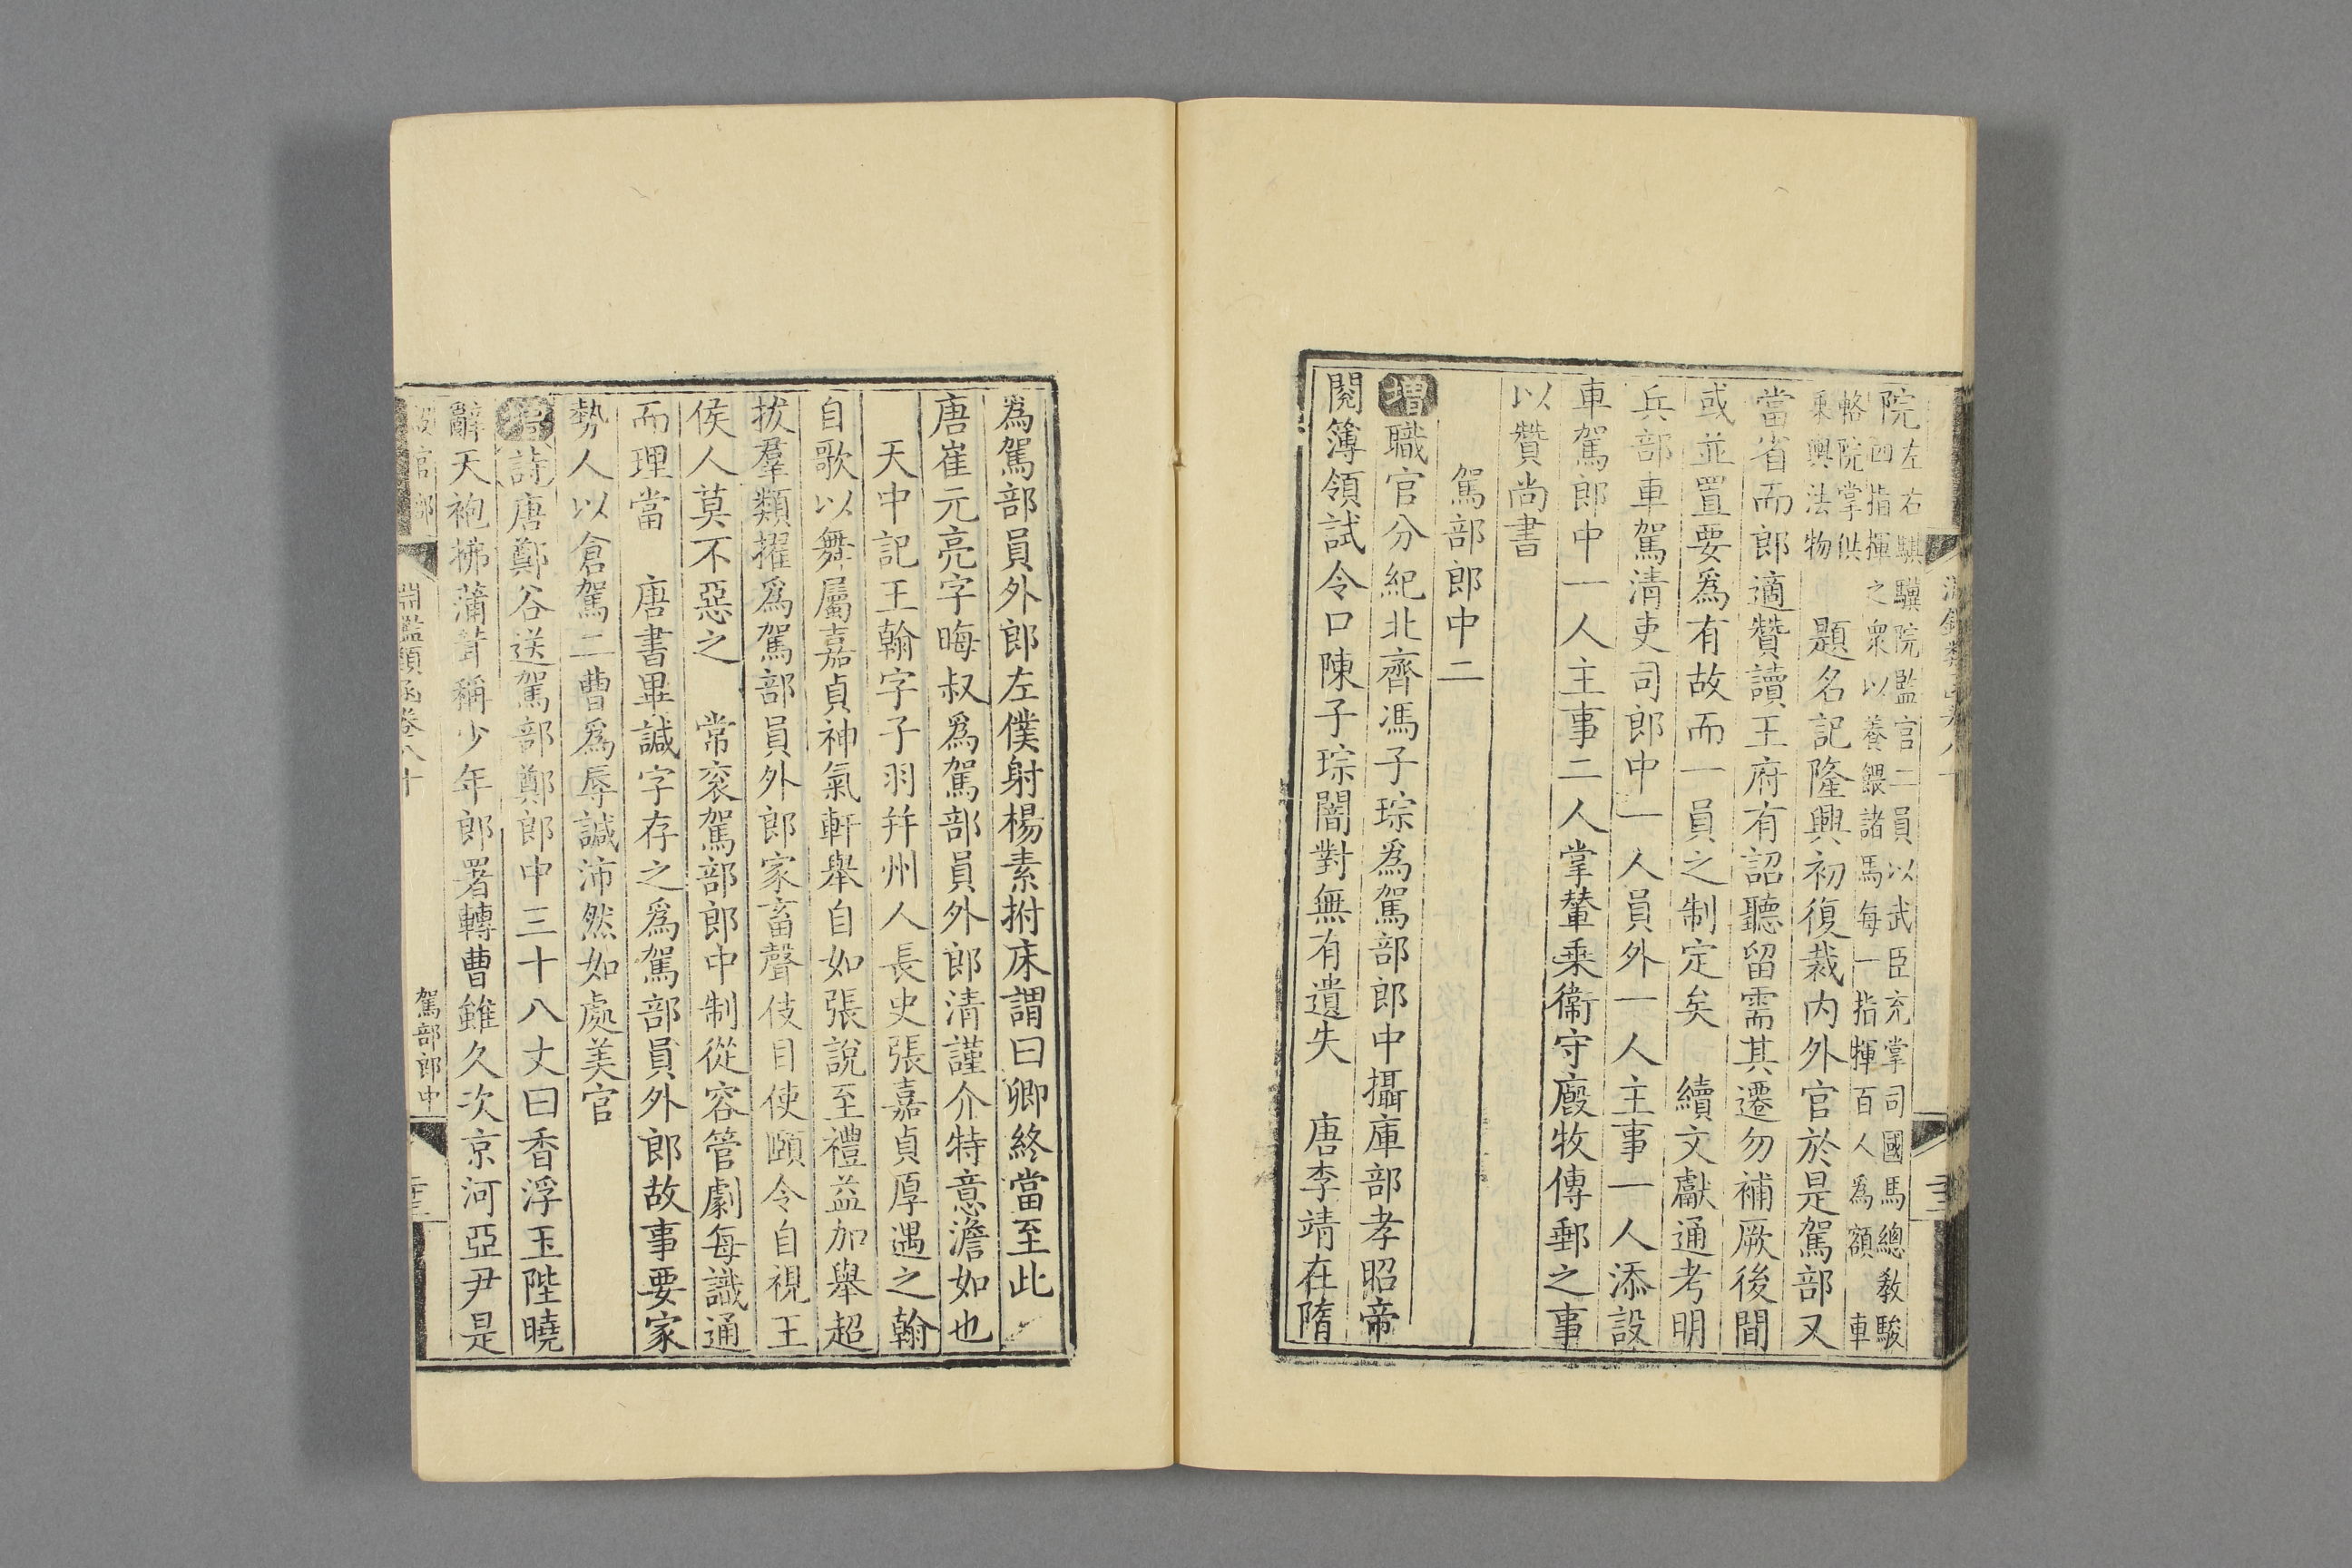 院左右騏驥院監官二員以武臣充掌司國馬總教駿
四指揮之衆以養餵諸馬每一指揮百人為額 車
輅院掌供
乗輿法物 題名記隆興初復裁内外官於是駕部又
當省而郎適贊讀王府有詔聽留需其遷勿補厥後間
或並置要為有故而一員之制定矣 續文獻通考明
兵部車駕清吏司郎中一人員外一人主事一人添設
車駕郎中一人主事二人掌輦乗衞守廐牧傳郵之事
以贊尚書
駕部郎中二
增職官分紀北齊馮子琮為駕部郎中攝庫部孝昭帝
閱簿領試令口陳子琮闇對無有遺失 唐李靖在隋
為駕部員外郎左僕射楊素拊床謂曰卿終當至此
唐崔元亮字晦叔為駕部員外郎清謹介特意澹如也
天中記王翰字子羽并州人長史張嘉貞厚遇之翰
自歌以舞屬嘉貞神氣軒舉自如張說至禮益加舉超
拔羣類擢為駕部員外郎家畜聲伎目使頤令自視王
侯人莫不惡之 常衮駕部郎中制從容管劇每識通
而理當 唐書畢諴字存之為駕部員外郎故事要家
勢人以倉駕二曹為辱諴沛然如處美官
增詩唐鄭谷送駕部鄭郎中三十八丈曰香浮玉陛曉
辭天袍拂蒲茸稱少年郎署轉曹雖久次京河亞尹是
淵鑑類函卷八十
駕部郎中